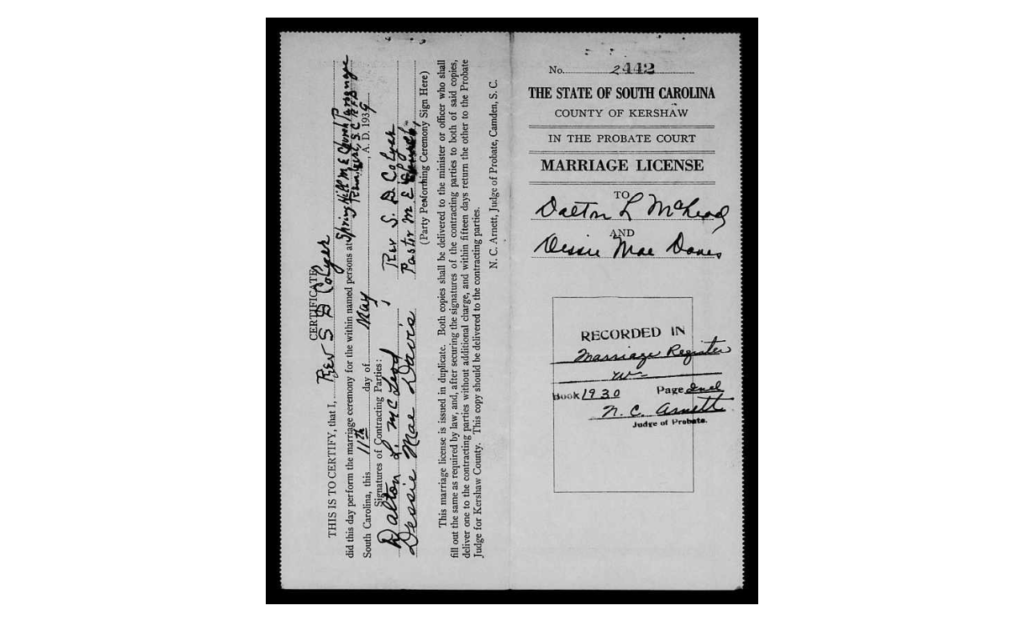 THIS IS TO CERTIFY, that I, Rev S D Colyer
CERTIFICATE
did this day perform the marriage ceremony for the within named persons at Spring Hill M E Church Parsonage
South Carolina, this 11th day of May, A. D. 1939
Signatures of Contracting Parties:
Dalton L. McLeod ; Rev S. D. Colyer
Dessie Mae Davis Pastor M. E.
(Party Performing Ceremony Sign Here)
This marriage license is issued in duplicate. Both copies shall be delivered to the minister or officer who shall
fill out the same as required by law, and, after securing the signatures of the contracting parties to both of said copies,
deliver one to the contracting parties without additional charge, and within fifteen days return the other to the Probate
Judge for Kershaw County. This copy should be delivered to the contracting parties.
N. C. Arnett, Judge of Probate, Camden, S. C.
No. 2442
THE STATE OF SOUTH CAROLINA
COUNTY OF KERSHAW
IN THE PROBATE COURT
MARRIAGE LICENSE
TO
Dalton L McLeod
AND
Dessie Mae Davis
RECORDED IN
Marriage Register
Book 1930 Page
N. C. Arnett
Judge of Probate.